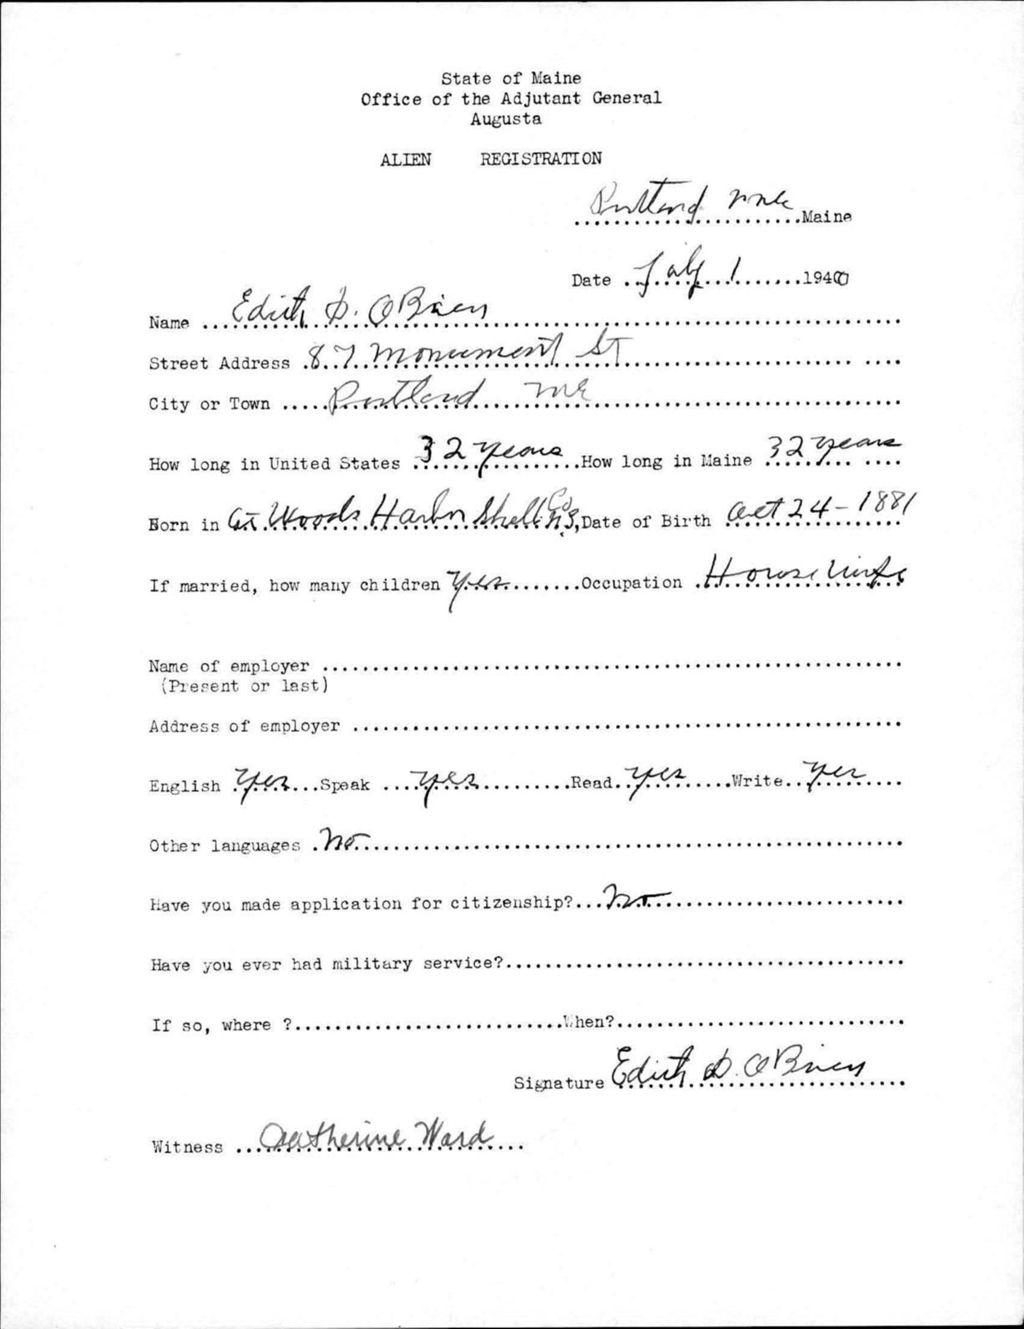 State of Maine
Office of the Adjutant General
Augusta
ALIEN REGISTRATION
Portland Me Maine
Date July 1 1940
Name Edith D. O'Brien
Street Address 87 Monument St
City or Town Portland Me
How long in United States 32 years How long in Maine 32 years
Born in At Woods Harbor Shell Co N.S, Date of Birth Oct 24 - 1881
If married, how many children Yes Occupation House Wife
Name of employer
(Present or last)
Address of employer
English Yes Speak yes Read yes Write yes
Other languages No
Have you made application for citizenship? No
Have you ever had military service?
If so, where ? When?
Signature Edith D. O'Brien
Witness Catherine Ward